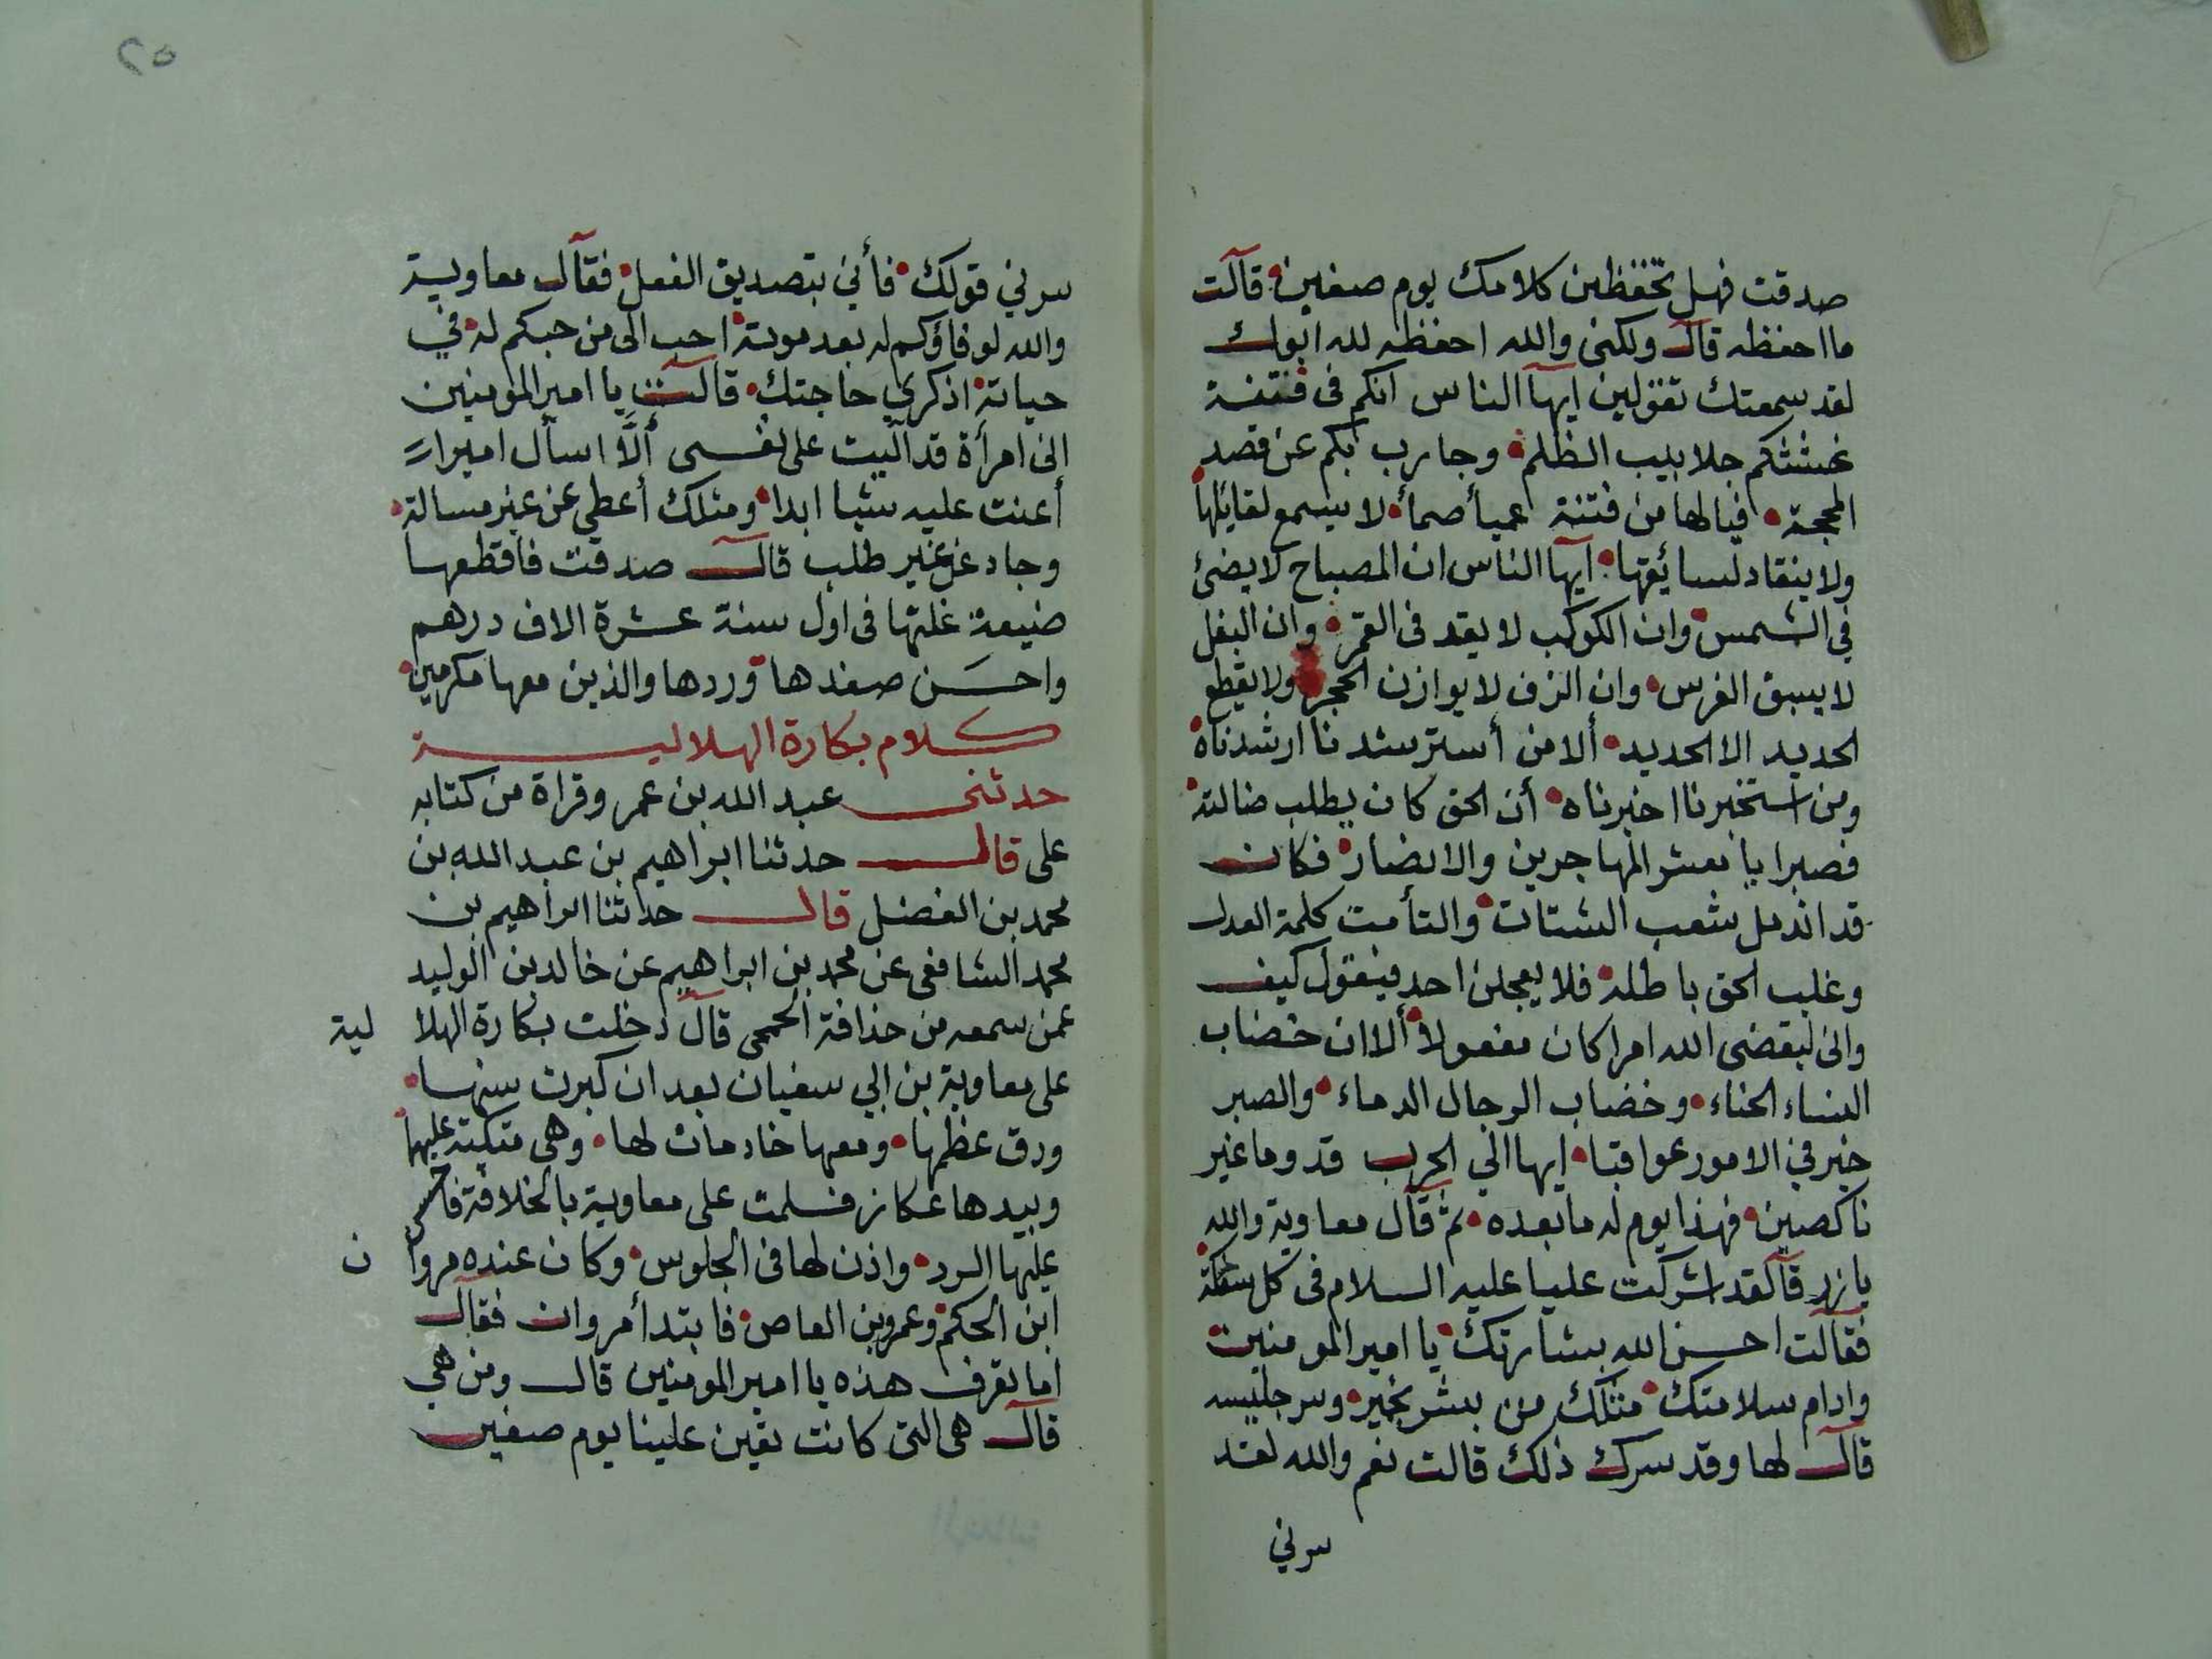 صدقت فهل تحفظين كلامك يوم صفين قالت
ما احفظه قال ولكنى والله احفظه لله ابوك
لقد سمعتك تقولين ايها الناس انكم فى فتنة
غشتكم جلابيب الظلم وجارب بكم عن قصد
المحجة فيا لها من فتنة عميأ صمأ لا يسمع لقائلها
ولا ينقاد لسائقها ايها الناس ان المصباح لا يضئ
في الشمس وان الكوكب لا يقد فى القمر وان البغل
لا يسبق الفرس وان الزف لا يوازن الحجر ولا يقطع
الحديد الا الحديد ألا من أسترشدنا ارشدناه
ومن استخبرنا اخبرناه أن الحق كان يطلب ضالته
فصبرا يا معشر المهاجرين والانصار فكان
قد اندمل شعب الشتات والتأمت كلمة العدل
وغلب الحق باطله فلا يعجلن احد فيقول كيف
وانى ليقضى الله امرا كان مفعولا ألا ان خضاب
النساء الحناء وخضاب الرجال الدماء والصبر
خير في الامور عواقبا ايها الي الحرب قدوما غير
ناكصين فهذا يوم له ما بعده ثم قال معاوية والله
يا زر قا لقد شركت عليا عليه السلام فى كل سفكة
فقالت احسن الله بشارتك يا امير المومنين
وادام سلامتك مثلك من بشر بخير وسر جليسه
قال لها وقد سرك ذلك قالت نعم والله لقد
سرني
٢٥
سرني قولك فأني بتصديق الفعل فقال معاوية
والله لوفاؤكم له بعد موته احب الى من حبكم له في
حياته اذكري حاجتك قالت يا امير المومنين
انى امرأة قد اليت على نفسى ألا اسأل اميرا
أعنت عليه شيا ابدا ومثلك أعطي عن غير مسالة
وجاد عن غير طلب قال صدقت فاقطعها
ضيعة غلتها فى اول سنة عشرة الاف درهم
واحسن صفدها وردها والذين معها مكرمين
كلام بكارة الهلالية
حدثنى عبد الله بن عمر وقراة من كتابه
على قال حدثنا ابراهيم بن عبد الله بن
محمد بن الفضل قال حدثنا ابراهيم بن
محمد الشافعى عن محمد بن ابراهيم عن خالد بن الوليد
عمن سمعه من حذافة الجمحى قال دخلت بكارة الهلا لية
على معاوية بن ابي سفيان بعد ان كبرت سنها
ودق عظمها ومعها خادمات لها وهى متكية عليهما
وبيدها عكاز فسلمت على معاوية بالخلافة فاحسن
عليها الرد واذن لها فى الجلوس وكان عنده مروا ن
ابن الحكم وعمرو بن العاص فابتدأ مروان فقال
اما تعرف هذه يا امير المومنين قال ومن هي
قال هى التى كانت تعين علينا يوم صفين